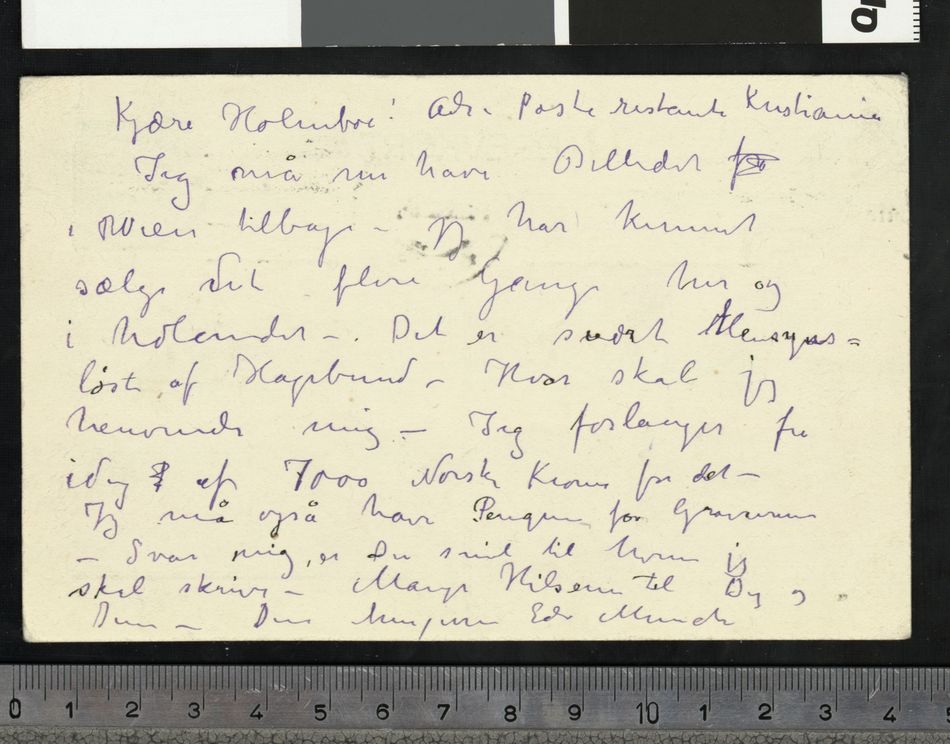 Kjære Holmboe! Adr. Poste restante Kristiania
Jeg må nu have Billedet
i Wien tilbage – jeg har kunnet
sælge det flere Gange her og
i Udlandet –. Det er svært Hensyns=
løst af Hagebund – Hvor skal jeg
henvende mig – Jeg forlanger fra
idag af 7000 Norske Kroner for det –
Jeg må også have Pengene for Gravurerne
– Svar mig, er Du snil til hvem jeg
skal skrive – Mange Hilsener til Dig og
Dine – Din hengivne Edv Munch
0 1 2 3 4 5 6 7 8 9 10 1 2 3 4 5